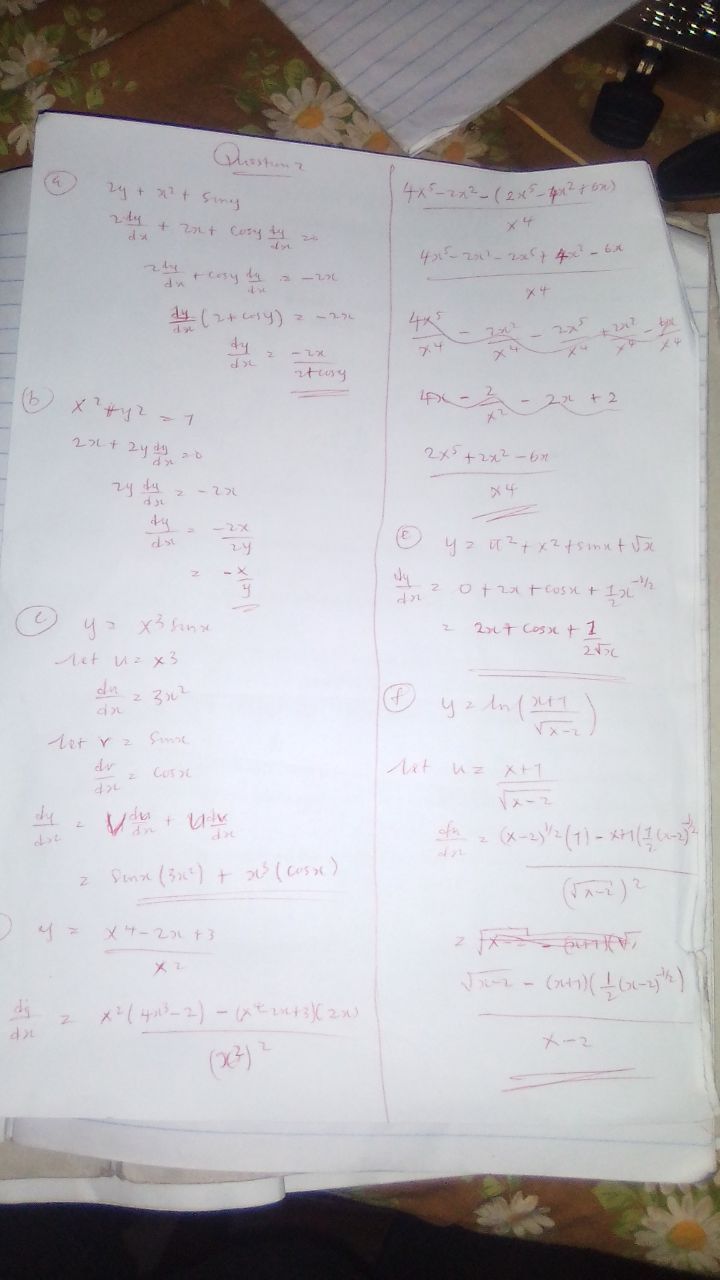 Question 2
(a) 2y + x² + siny
2dy/dx + 2x + cosy dy/dx = 0
2dy/dx + cosy dy/dx = -2x
dy/dx (2 + cosy) = -2x
dy/dx = -2x/(2+cosy)
(b) x² + y² = 7
2x + 2y dy/dx = 0
2y dy/dx = -2x
dy/dx = -2x/2y
= -x/y
(c) y = x³ sinx
let u = x³
du/dx = 3x²
let v = sinx
dv/dx = cosx
dy/dx = V du/dx + U dv/dx
= sinx(3x²) + x³(cosx)
y = (x⁴ - 2x + 3)/x²
dy/dx = (x²(4x³-2) - (x⁴-2x+3)(2x))/(x²)²
(4x⁵ - 2x² - (2x⁵ - 4x² + 6x))/x⁴
(4x⁵ - 2x² - 2x⁵ + 4x² - 6x)/x⁴
4x⁵/x⁴ - 2x²/x⁴ - 2x⁵/x⁴ + 2x²/x⁴ - 6x/x⁴
4x - 2/x² - 2x + 2
(2x⁵ + 2x² - 6x)/x⁴
(e) y = π² + x² + sinx + √x
dy/dx = 0 + 2x + cosx + 1/2 x^(-1/2)
= 2x + cosx + 1/(2√x)
(f) y = ln((x+7)/√(x-2))
let u = (x+7)/√(x-2)
du/dx = ((x-2)^(1/2)(1) - x+7(1/2(x-2)^(-1/2)))/(√(x-2))²
=
(√(x-2) - (x+7)(1/2(x-2)^(-1/2)))/(x-2)